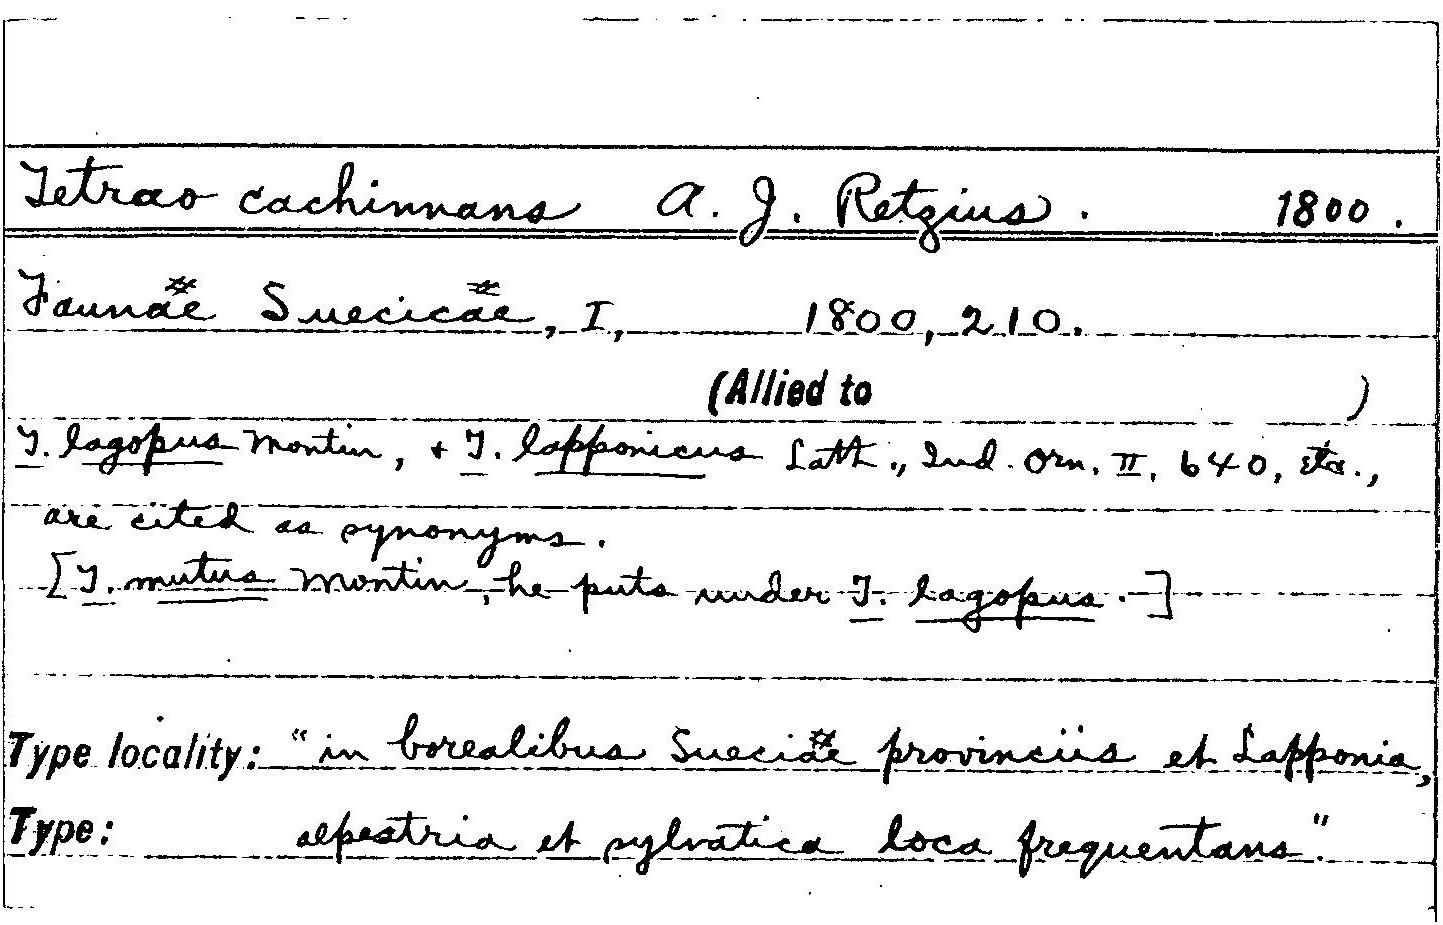 Tetrao cachinnans A. J. Retzius. 1800.
Faunae Suecicae, I, 1800, 210.
(Allied to )
T. lagopus Montin, + T. lapponicus Lath., Ind. Orn. II, 640, etc.,
are cited as synonyms.
[T. mutus Montin, he puts under T. lagopus.]
Type locality: "in borealibus Sueciae provinciis et Lapponia,
Type: alpestria et sylvatica loca frequentans."